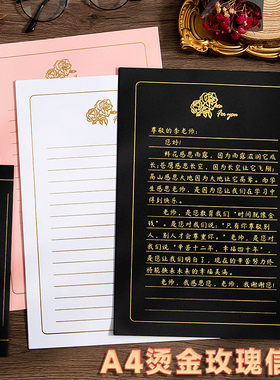 For you
尊敬的李老师:
您好!
鲜花感恩雨露,因为雨露滋润它成
长;苍鹰感恩长空,因为长空让它飞翔;
高山感恩大地因为大地让它高耸;而学
生感恩老师,是因为您让我们在学习中
得到快乐。
老师,是您教育我们"时间就像金
钱"。是您对我们说,"只有你尊敬别
人,别人才会尊重你。"老师,是您对
我们说"辛苦十二年,幸福四十年"
是您让我们明白了,现在的辛苦努力终
将能换来未来的幸福美满。
老师,我感恩您,老师,我谢谢您!
A4烫金玫瑰信